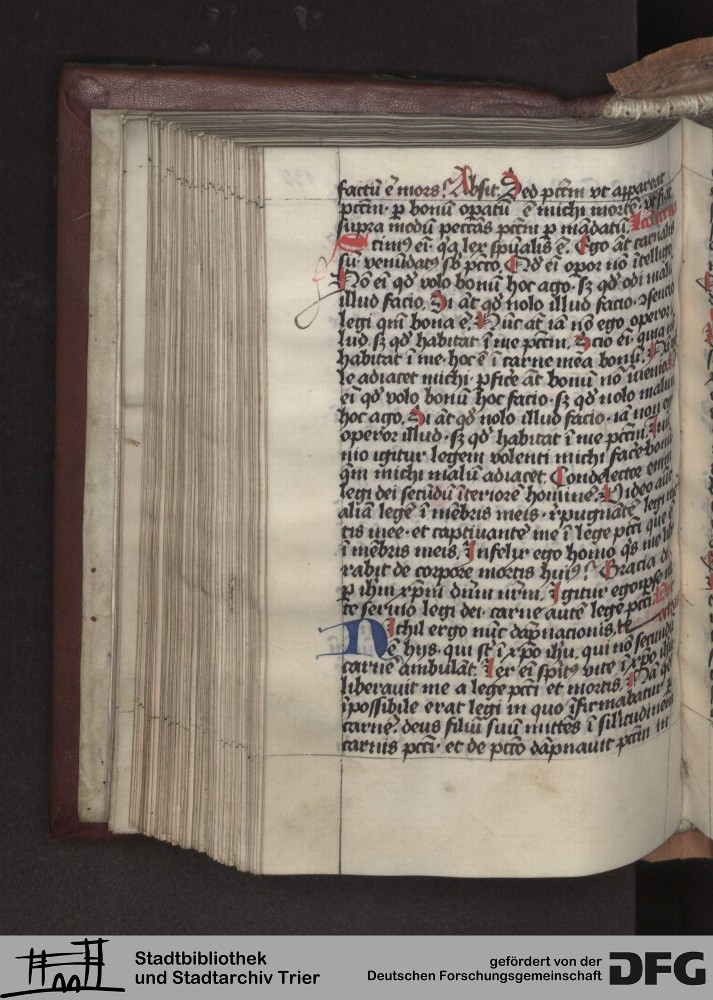 factū ē mors? Absit. Sed pctm̄ vt appareat
pctm̄· p bonū opatū ē michi mortē· vt fiat
supra modū peccās pctm̄ p mādatū.
tim9 ei· qa lex spūalis ē. Ego āt carnalis
sū venūdat9 sb pcto. Qd ei opor nō ītelligo
Nō ei qd volo bonū hoc ago· sz qd odi malū
illud facio. Si āt qd nolo illud facio· ɔsencio
legi qm̄ bona ē. Nūc āt iā nō ego operor
lud· sz qd habitat ī me pctm̄. Scio ei· quia nō
habitat ī me· hoc ē ī carne mea bonū.
le adiacet michi· pfice āt bonū nō īuenio.
ei qd volo bonū hoc facio· sz qd nolo malū
hoc ago. Si āt qd nolo illud facio· iā non ego
operor illud· sz qd habitat ī me pctm̄.
nio igitur legem volenti michi face bonū
qm̄ michi malū adiacet. Condelector enim
legi dei secūdū īteriorē hominē. Video aūt
aliā legē ī mēbris meis· rpugnātē legi
tis mee· et captiuantē me ī lege pcti que ē
ī mēbris meis. Infelix ego homo qs me libe
rabit de corpore mortis hui9? Gracia dei
p ihm xpm̄ dnm nrm̄. Igitur ego ipse
te seruio legi dei· carne autē lege pcti
Nichil ergo nūc dāpnacionis
ē hys· qui st ī xpo ihu, qui nō secundū
carnē ambulāt. Lex ei spirit9 vite ī xpo ihu
liberauit me a lege pcti et mortis. Nā qd
īpossibile erat legi in quo īfirmabatur p
carnē· deus filiū suū mittēs ī silitudinem
carnis pcti· et de pcto dāpnauit pctm̄ in
Stadtbibliothek
und Stadtarchiv Trier
gefördert von der
Deutschen Forschungsgemeinschaft
DFG